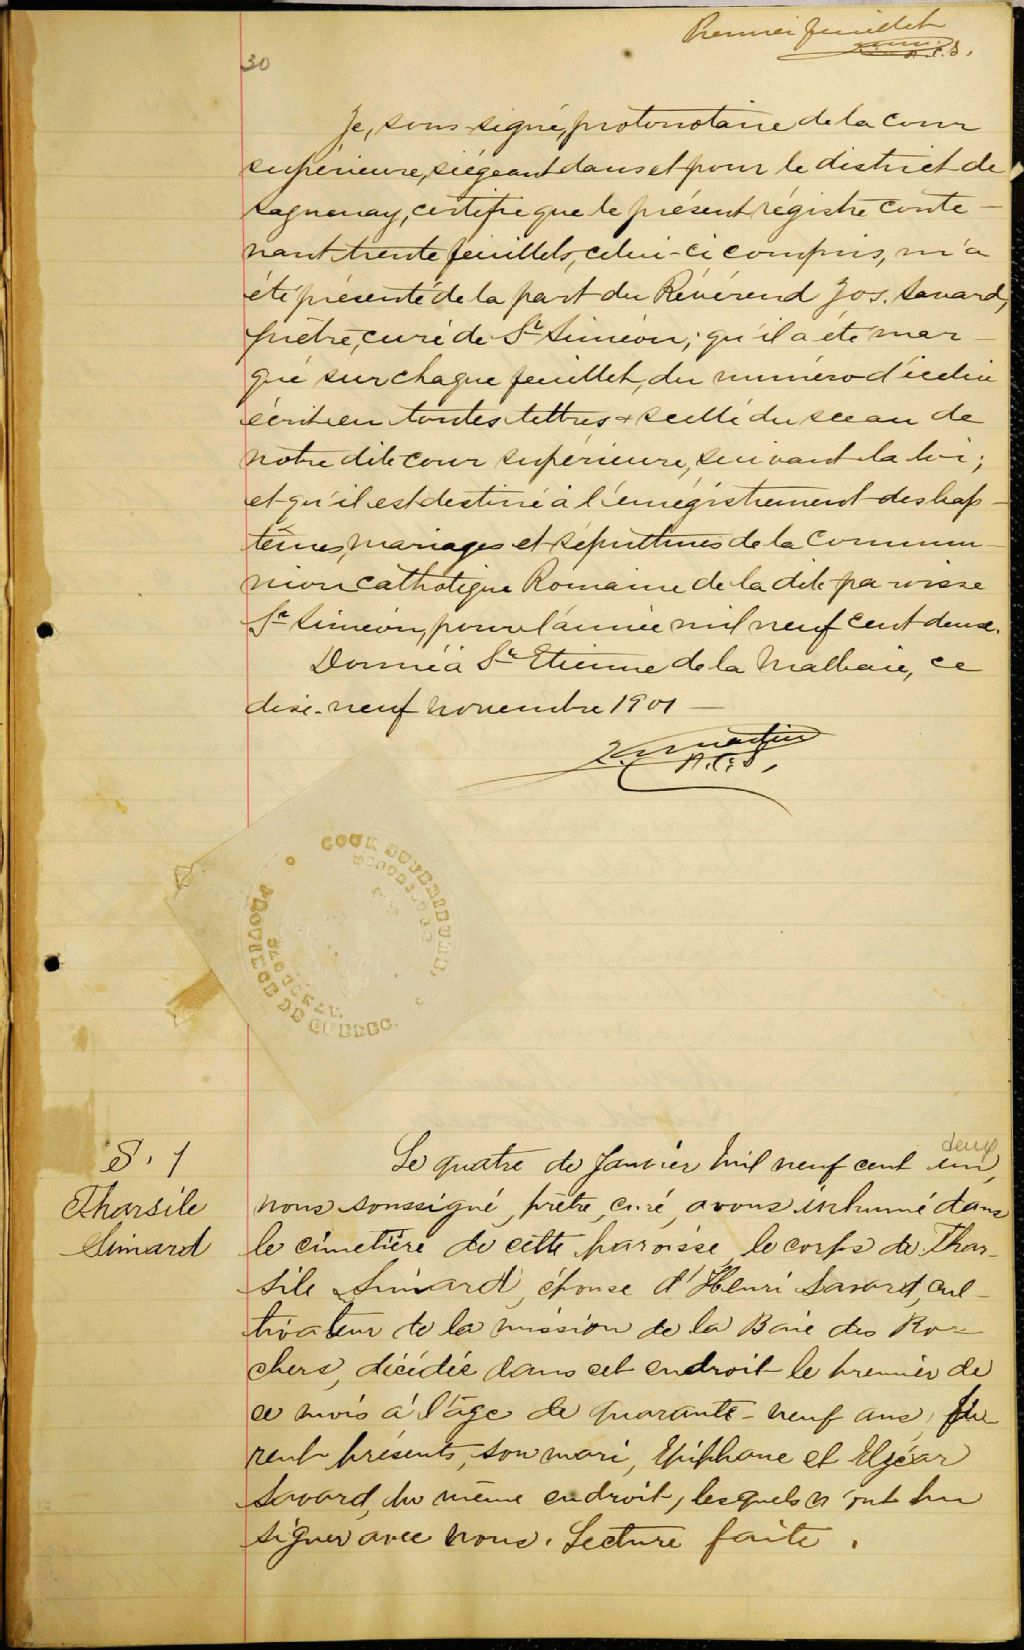 Premier feuillet
30
Je, sous-signé, protonotaire de la Cour
supérieure, siégeant dans et pour le district de
Saguenay, certifie que le présent régistre conte-
nant trente feuillets, celui-ci compris, m'a
été présenté de la part du Révérend Jos. Savard,
prêtre, curé de St Siméon; qu'il a été mar-
qué sur chaque feuillet, du numéro d'icelui
écrit en toutes lettres & scellé du sceau de
notre dite cour supérieure, suivant la loi;
et qu'il est destiné à l'enrégistrement des bap-
têmes, mariages et sépultures de la Commu-
nion Catholique Romaine de la dite paroisse
St Siméon, pour l'année mil neuf cent deux.
Donné à St Etienne de la Malbaie, ce
dix-neuf novembre 1901 —
Martin
COUR SUPERIEURE.
PROVINCE DE QUEBEC.
S. 1
Tharsile
Simard
deux
Le quatre de Janvier mil neuf cent un,
nous soussigné, prêtre, curé, avons inhumé dans
le cimetière de cette paroisse le corps de Thar-
sile Simard, épouse d'Henri Savard, cul-
tivateur de la mission de la Baie des Ro-
chers, décédée dans cet endroit le premier de
ce mois à l'âge de quarante-neuf ans, fu-
rent présents, son mari, Epiphane et Elzéar
Savard, du même endroit, lesquels n'ont pu
signer avec nous. Lecture faite.